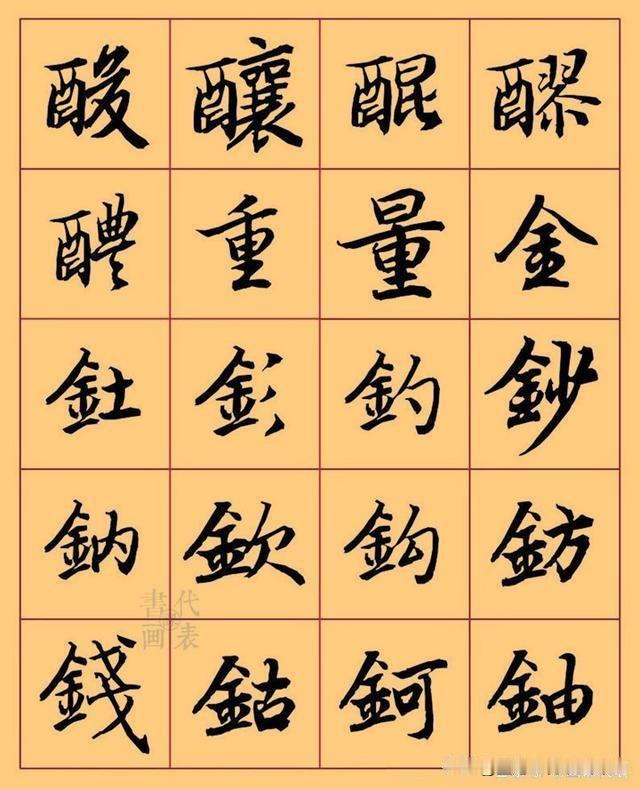 酸 釀 醌 醪
醴 重 量 金
釷 釤 釣 鈔
鈉 欽 鈎 鈁
錢 鈷 鈳 鈾
代表
書画